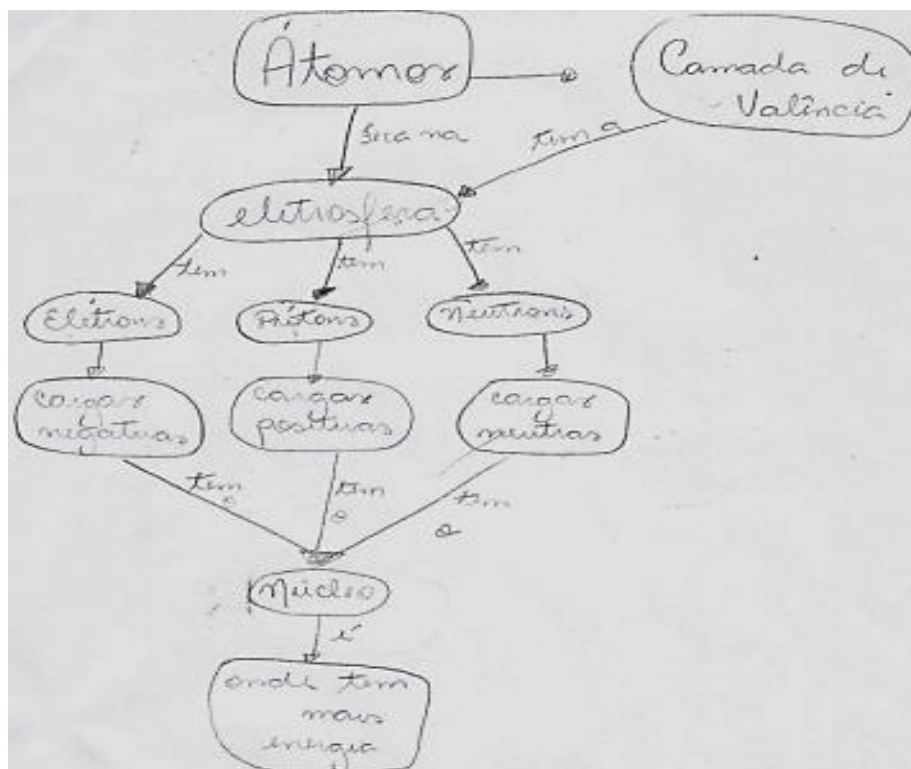 Átomos
Camada de
Valência
fica na
tem a
eletrosfera
tem
tem
tem
Elétrons
Prótons
Neutrons
cargas
negativas
cargas
positivas
cargas
neutras
tem
o
tem
o
tem
o
Núcleo
é
onde tem
mais
energia